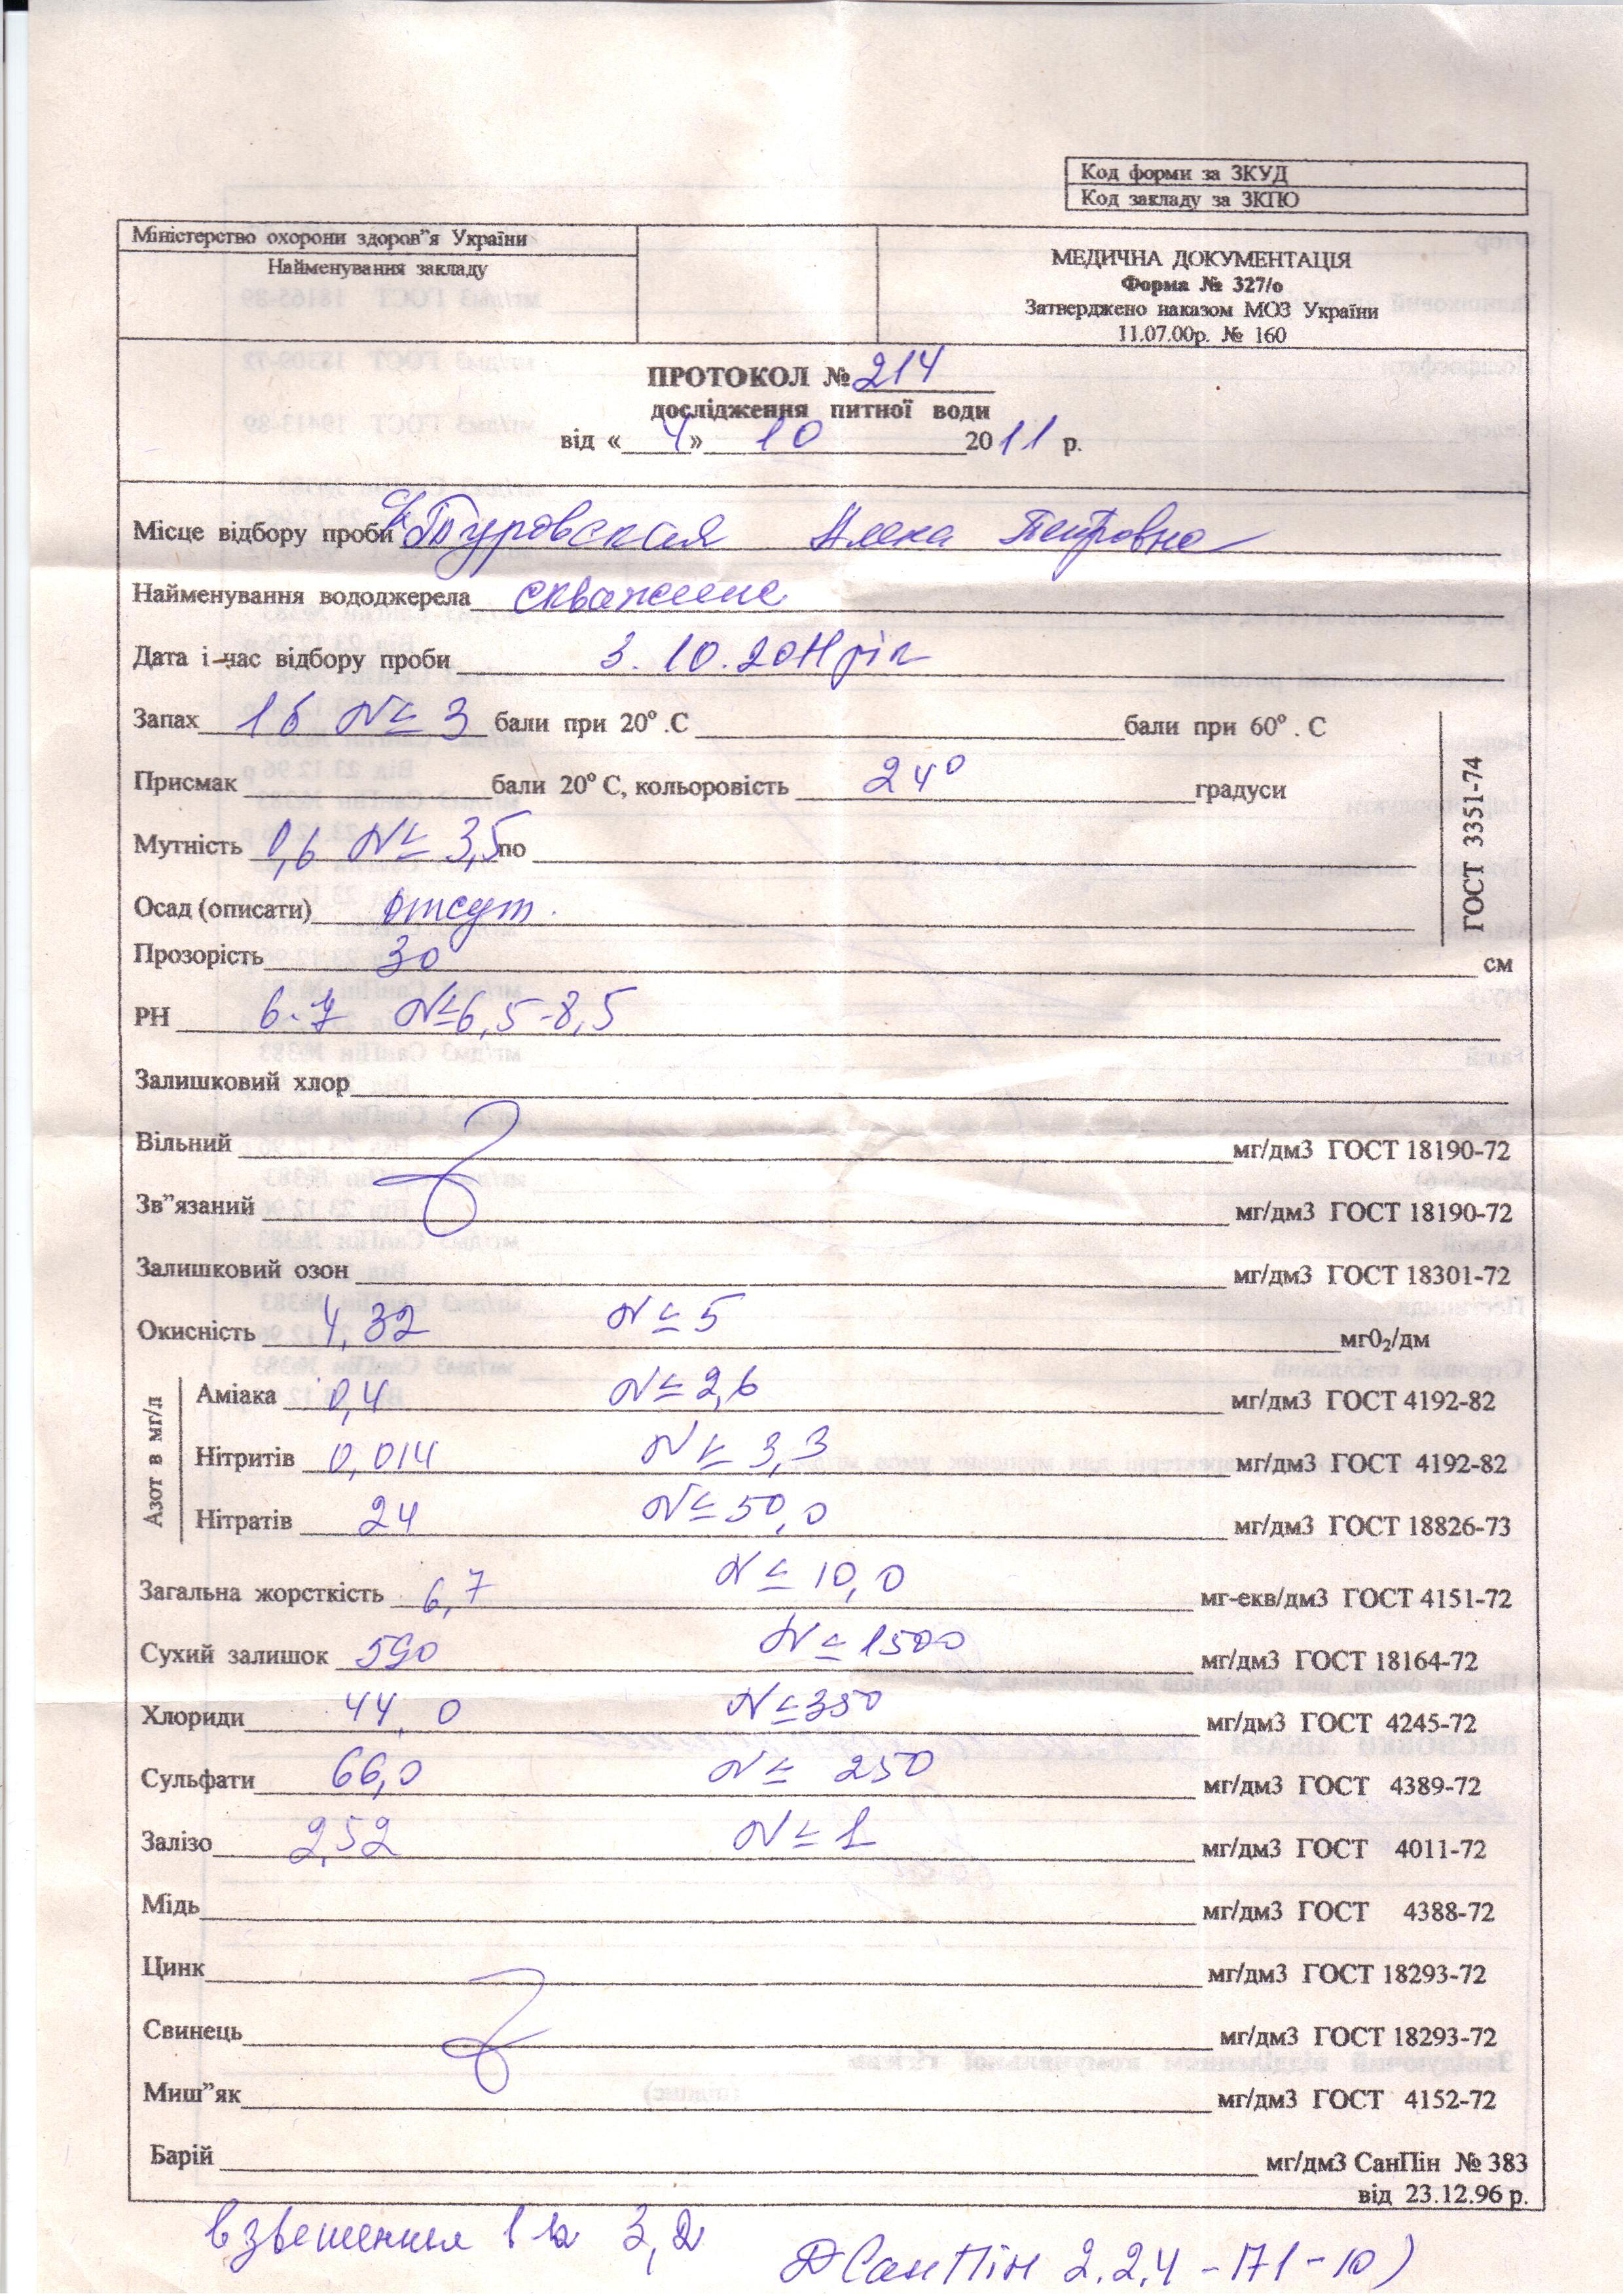 Код форми за ЗКУД
Код закладу за ЗКПО
Міністерство охорони здоров"я України
Найменування закладу
МЕДИЧНА ДОКУМЕНТАЦІЯ
Форма № 327/о
Затверджено наказом МОЗ України
11.07.00р. № 160
ПРОТОКОЛ № 214
дослідження питної води
від « 4 » 10 2011 р.
Місце відбору проби Туровская Петровна
Найменування вододжерела скважина
Дата і час відбору проби 3.10.2011 рік
Запах 1б N≤3 бали при 20° .С бали при 60° . С
Присмак бали 20° С, кольоровість 24° градуси
Мутність 0,6 N≤ 3,5 по
Осад (описати) отсут.
ГОСТ 3351-74
Прозорість 30 см
РН 6.7 N≤6,5-8,5
Залишковий хлор
Вільний мг/дм3 ГОСТ 18190-72
Зв"язаний мг/дм3 ГОСТ 18190-72
Залишковий озон мг/дм3 ГОСТ 18301-72
Окисність 4,32 N≤5 мг0₂/дм
Азот в мг/л
Аміака 0,4 N≤2,6 мг/дм3 ГОСТ 4192-82
Нітритів 0,014 N≤ 3,3 мг/дм3 ГОСТ 4192-82
Нітратів 24 N≤50,0 мг/дм3 ГОСТ 18826-73
Загальна жорсткість 6,7 N≤ 10,0 мг-екв/дм3 ГОСТ 4151-72
Сухий залишок 590 N≤1500 мг/дм3 ГОСТ 18164-72
Хлориди 44,0 N≤350 мг/дм3 ГОСТ 4245-72
Сульфати 66,0 N≤ 250 мг/дм3 ГОСТ 4389-72
Залізо 2,52 N≤1 мг/дм3 ГОСТ 4011-72
Мідь мг/дм3 ГОСТ 4388-72
Цинк мг/дм3 ГОСТ 18293-72
Свинець мг/дм3 ГОСТ 18293-72
Миш"як мг/дм3 ГОСТ 4152-72
Барій мг/дм3 СанПін № 383
від 23.12.96 р.
3,2
ДСанПін 2.2.4-171-10)